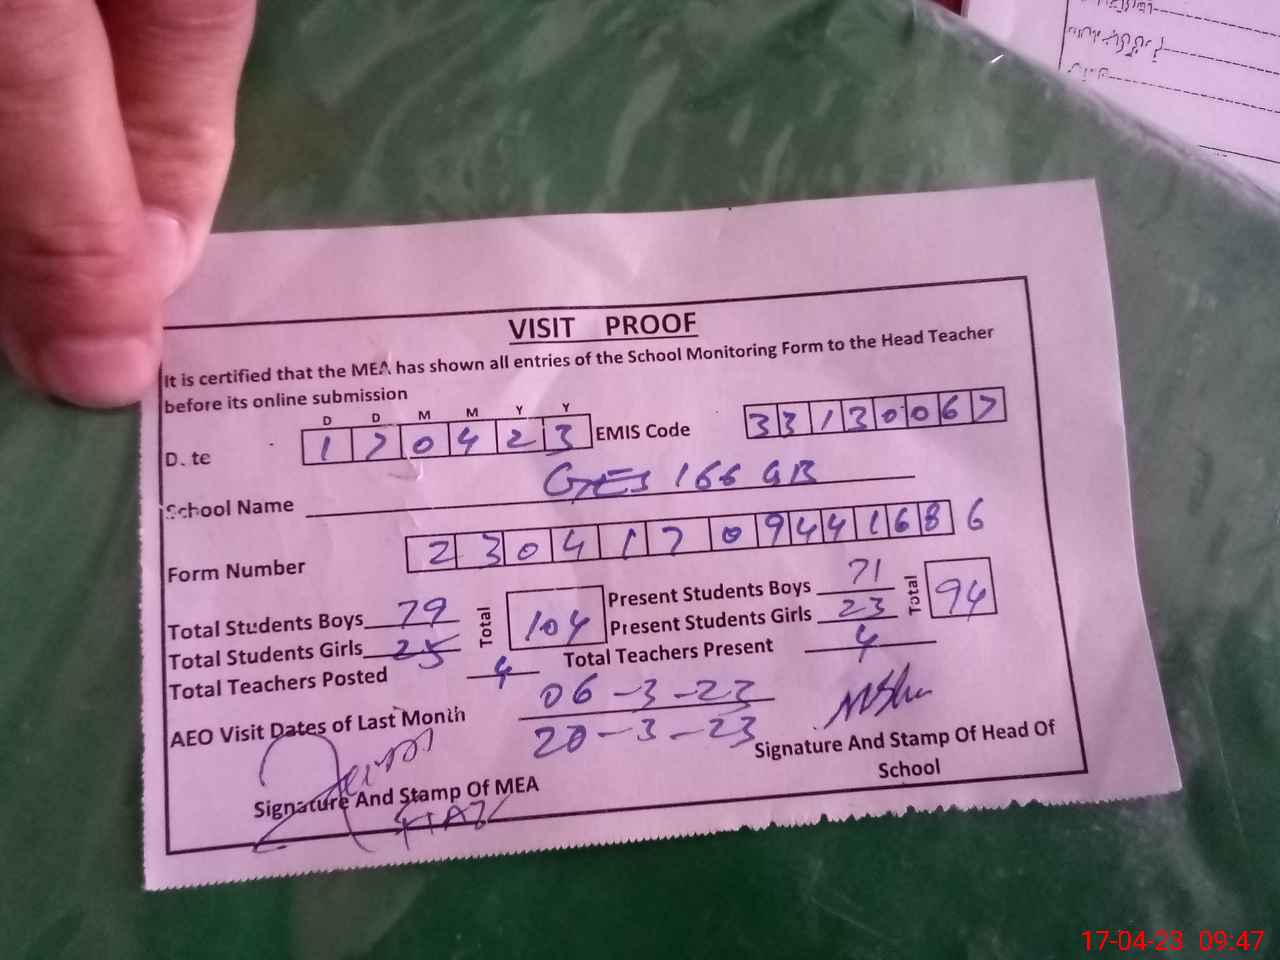 VISIT PROOF
It is certified that the MEA has shown all entries of the School Monitoring Form to the Head Teacher
before its online submission
D D M M Y Y
D. te 1 7 0 4 2 3 EMIS Code 3 3 1 3 0 0 6 7
School Name GES 166 GB
Form Number 2 3 0 4 1 7 0 9 4 4 1 6 8 6
Total Students Boys 79 Total 104 Present Students Boys 71 Total 94
Total Students Girls 25 Present Students Girls 23
Total Teachers Posted 4 Total Teachers Present 4
AEO Visit Dates of Last Month 06-3-23
20-3-23
Signature And Stamp Of MEA
Signature And Stamp Of Head Of
School
17-04-23 09:47